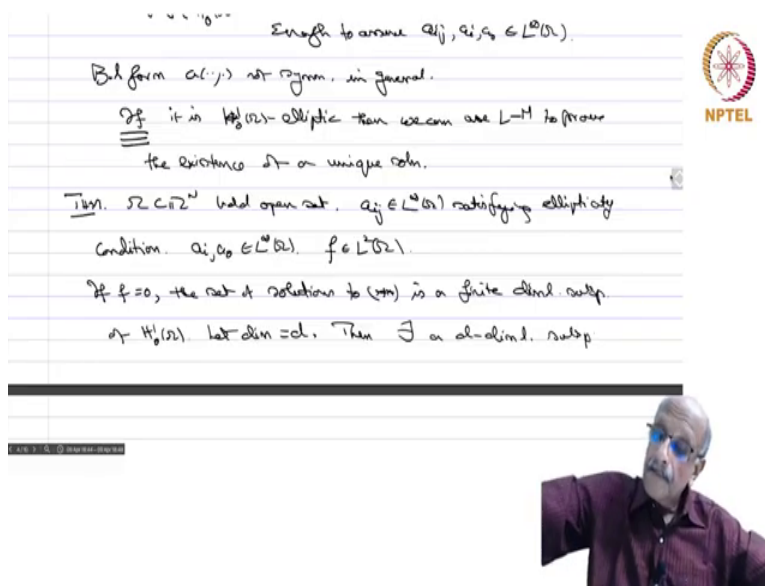 Enough to assume aij, ai, a0 ∈ L^∞(Ω).
Bil form a(·,·) not symm. in general.
If it is H¹₀(Ω)-elliptic then we can use L-M to prove
the existence of a unique soln.
Thm. Ω ⊂ ℝ^N bdd open set. aij ∈ L^∞(Ω) satisfying ellipticity
condition. ai, a0 ∈ L^∞(Ω). f ∈ L²(Ω).
If f=0, the set of solutions to (**) is a finite diml. subsp.
of H¹₀(Ω). Let dim = d. Then ∃ a d-diml. subsp
NPTEL